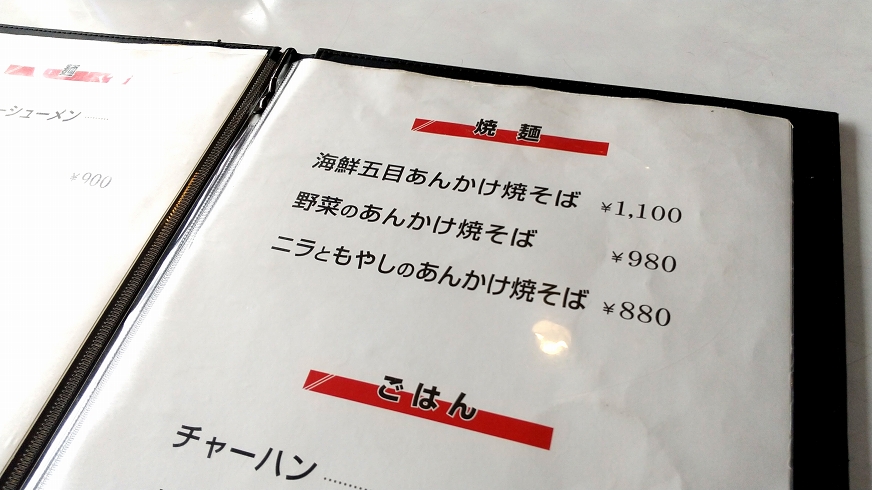 麺
ーシューメン
¥900
焼 麺
海鮮五目あんかけ焼そば ¥1,100
野菜のあんかけ焼そば ¥980
ニラともやしのあんかけ焼そば ¥880
ごはん
チャーハン